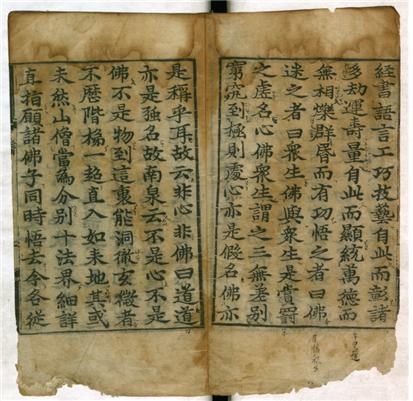 經書語言工巧技藝自此而彰諸
劫運壽量有此而顯統萬德而
無相爍群昏而有功悟之者曰佛
迷之者曰衆生佛與衆生是賞罰
之虛名心佛衆生謂之三無差別
窮究到極則處心亦是假名佛亦
是稱乎耳故云非心非佛曰道道
亦是強名故南泉云不是心不是
佛不是物到這裏能洞徹玄微者
不歷階梯一超直入如來地其或
未然山僧當爲分別十法界細詳
直指願諸佛子同時悟去令各從